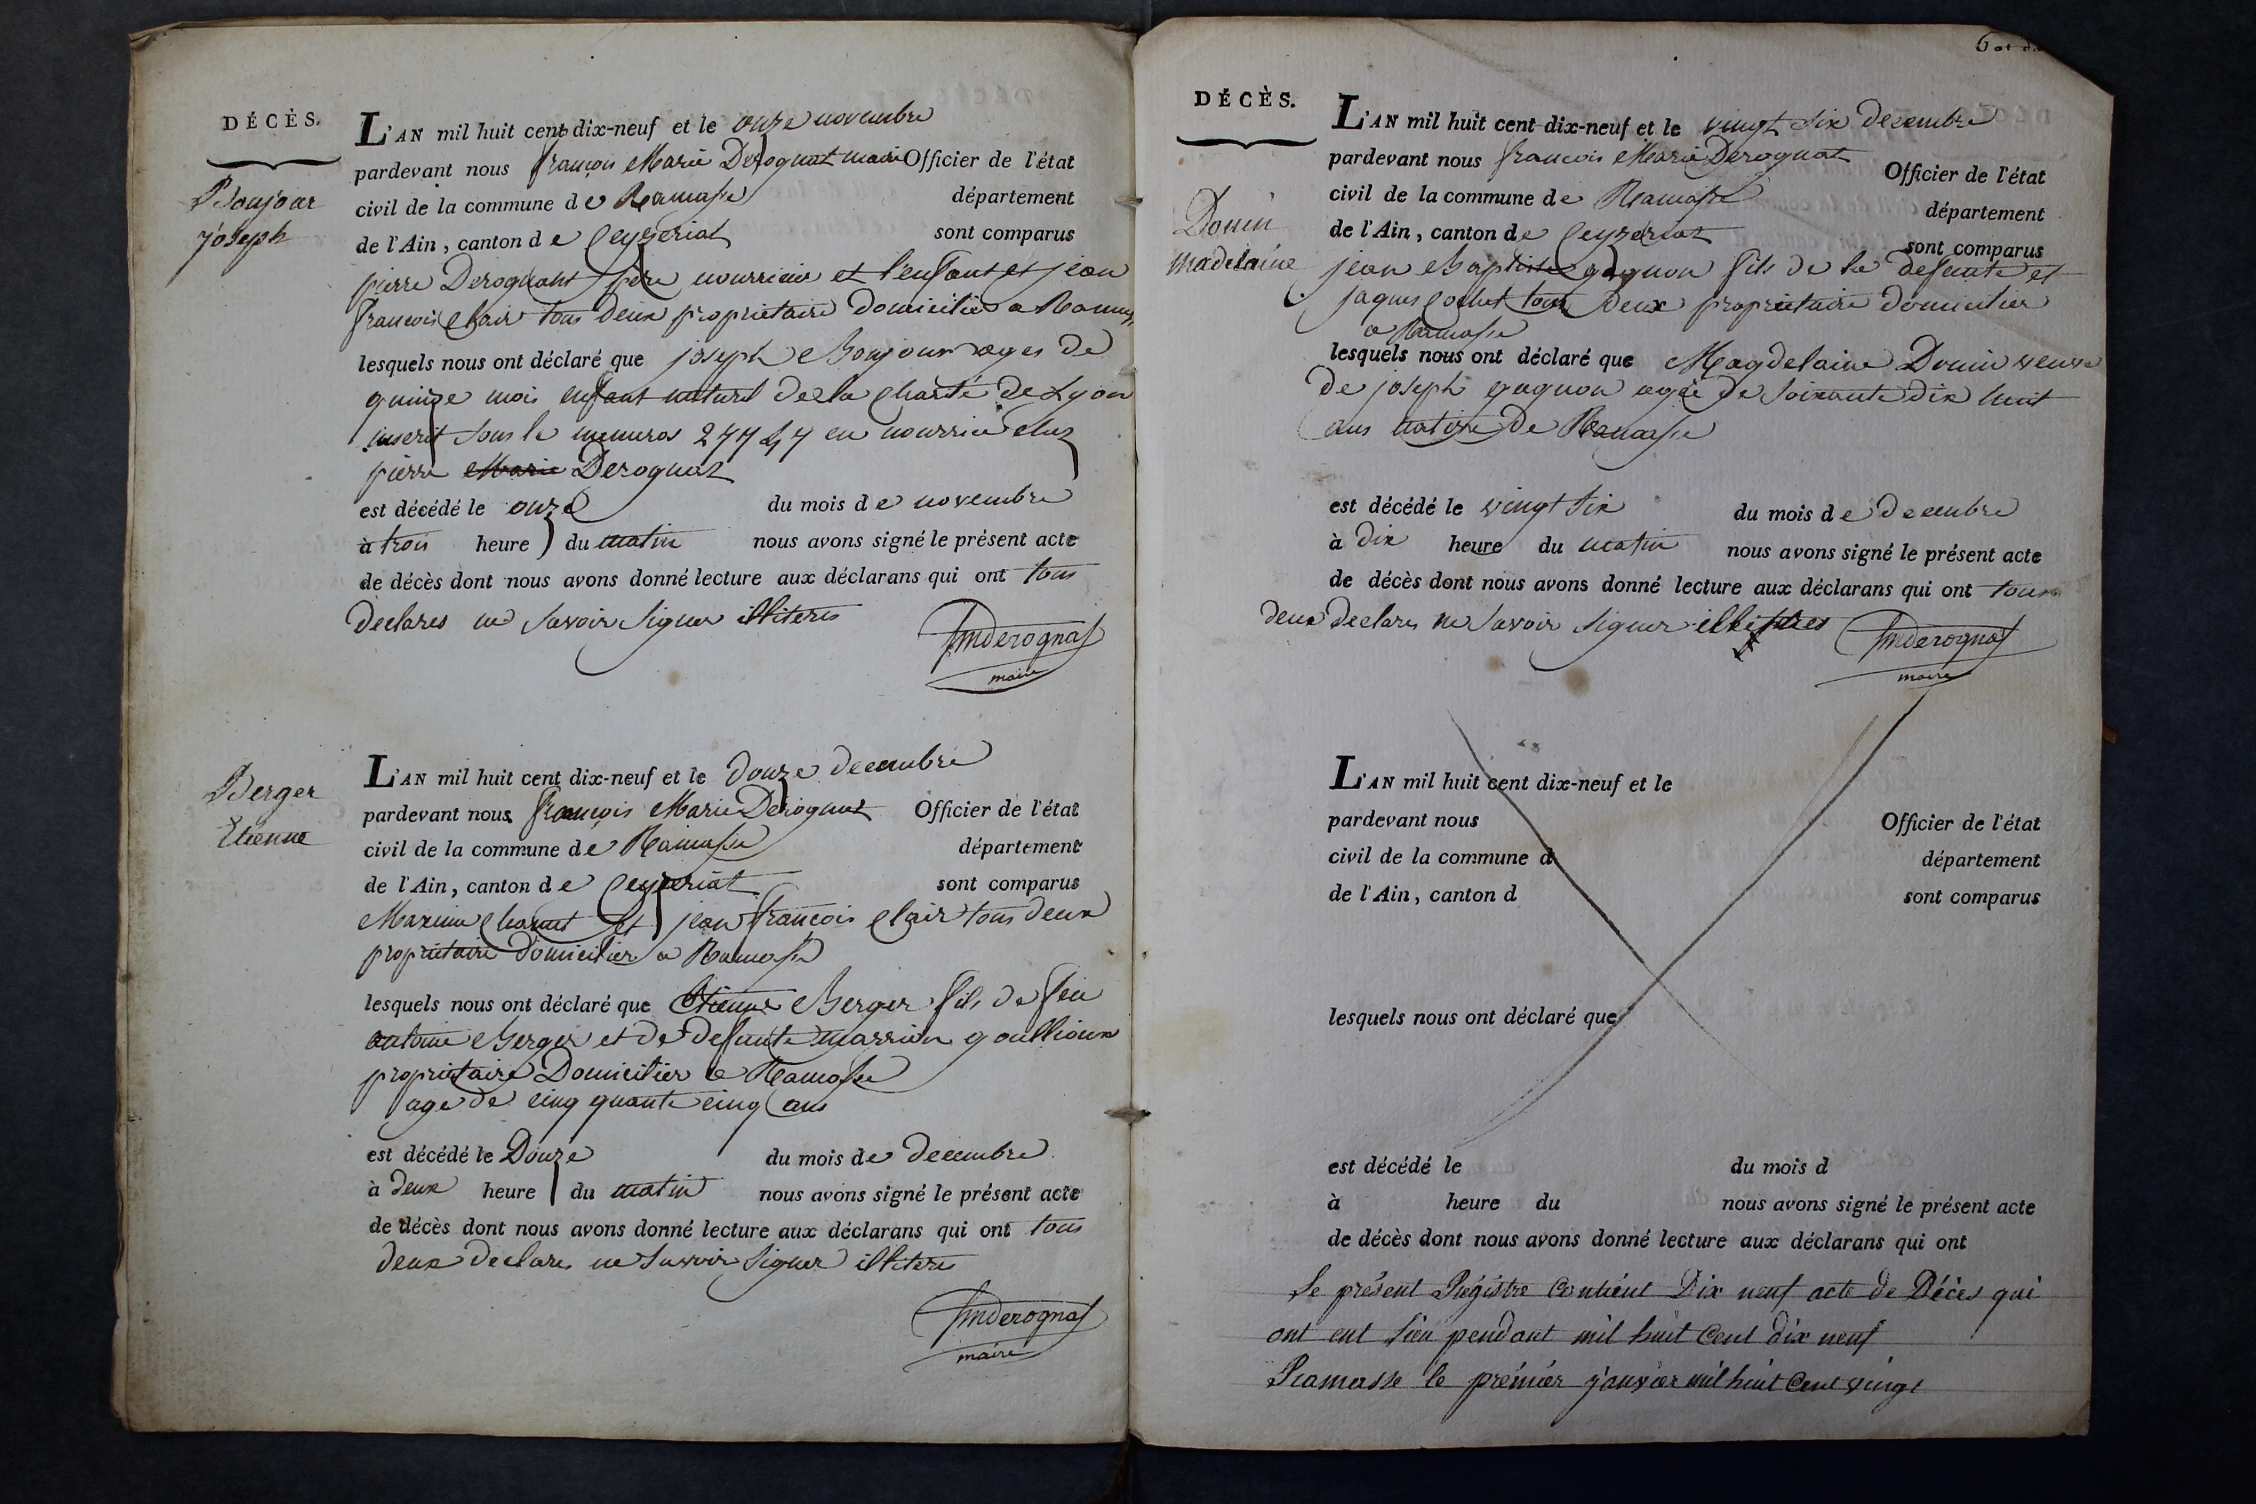 DÉCÈS.
Bonjour
joseph
L'AN mil huit cent dix-neuf et le onze novembre
pardevant nous françois Marie Derognat maire Officier de l'état
civil de la commune de Ramasse département
de l'Ain, canton de Ceyzeriat sont comparus
pierre Derognat père nourricier et l'enfant et jean
francois Clair tous deux proprietaire domicilier a Ramasse
lesquels nous ont déclaré que joseph Bonjour ages de
quinze mois enfant naturel de la Charité de Lyon
inscrit sous le numeros 27747 en nourrice chez
pierre Marie Derognat
est décédé le onze du mois de novembre
à trois heure du matin nous avons signé le présent acte
de décès dont nous avons donné lecture aux déclarans qui ont tous
declares ne savoir signer illiteres
fmderognat
maire
Berger
Etienne
L'AN mil huit cent dix-neuf et le douze decembre
pardevant nous françois Marie Derognat Officier de l'état
civil de la commune de Ramasse département
de l'Ain, canton de Ceyzeriat sont comparus
Maxime et jean françois Clair tous deux
proprietaire domicilier a Ramasse
lesquels nous ont déclaré que Etienne Berger fils de feu
antoine Berger et de defunte marrion goullioux
proprietaire Domicilier a Ramasse
age de cinq quante cinq ans
est décédé le Douze du mois de decembre
à deux heure du matin nous avons signé le présent acte
de décès dont nous avons donné lecture aux déclarans qui ont tous
deux declares ne savoir signer illiteres
fmderognat
maire
6
DÉCÈS.
Douin
madelaine
L'AN mil huit cent dix-neuf et le vingt six decembre
pardevant nous francois Marie Derognat Officier de l'état
civil de la commune de Ramasse département
de l'Ain, canton de Ceyzeriat sont comparus
jean Baptiste gagnon fils de la defunte et
jaques Cochet tous deux proprietaire domicilier
a Ramasse
lesquels nous ont déclaré que Magdelaine Douin veuve
de joseph gagnon agée de soixante dix huit
ans native de Ramasse
est décédé le vingt six du mois de decembre
à dix heure du matin nous avons signé le présent acte
de décès dont nous avons donné lecture aux déclarans qui ont tous
deux declares ne savoir signer
fmderognat
maire
L'AN mil huit cent dix-neuf et le
pardevant nous Officier de l'état
civil de la commune d département
de l'Ain, canton d sont comparus
lesquels nous ont déclaré que
est décédé le du mois d
à heure du nous avons signé le présent acte
de décès dont nous avons donné lecture aux déclarans qui ont
Le présent Régistre contient Dix neuf acte de Décès qui
ont eut lieu pendant mil huit Cent dix neuf
Ramasse le prémiér janvier mil huit Cent vingt